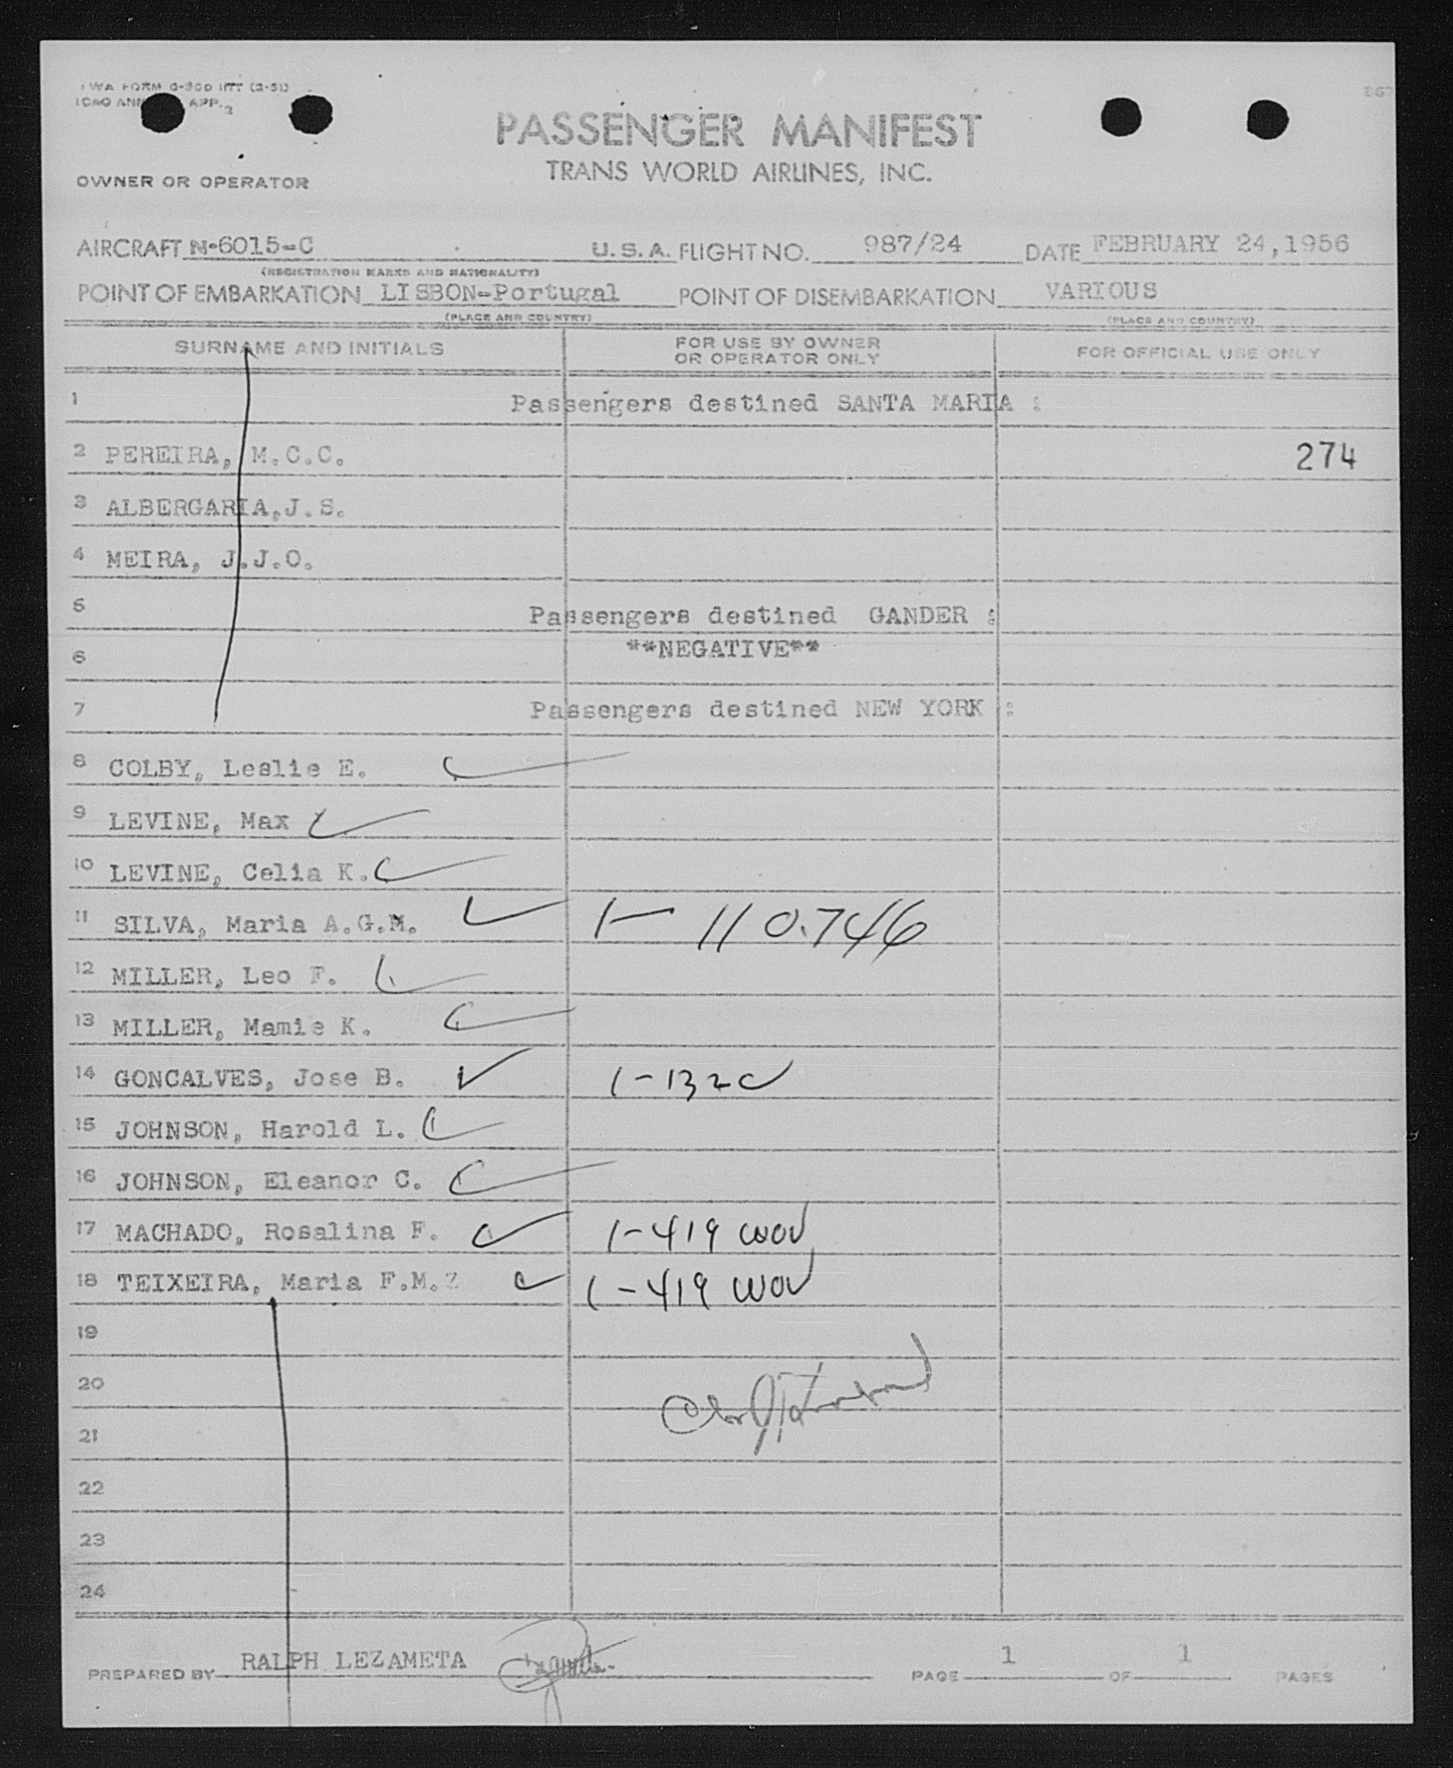 TWA FORM
ICAO ANN APP. 2
PASSENGER MANIFEST
TRANS WORLD AIRLINES, INC.
OWNER OR OPERATOR
AIRCRAFT N-6015-C U.S.A. FLIGHT NO. 987/24 DATE FEBRUARY 24,1956
(REGISTRATION MARKS AND NATIONALITY)
POINT OF EMBARKATION LISBON-Portugal POINT OF DISEMBARKATION VARIOUS
(PLACE AND COUNTRY) (PLACE AND COUNTRY)
SURNAME AND INITIALS FOR USE BY OWNER OR OPERATOR ONLY FOR OFFICIAL USE ONLY
1 Passengers destined SANTA MARIA :
2 PEREIRA, M.C.C. 274
3 ALBERGARIA,J.S.
4 MEIRA, J.J.O.
5 Passengers destined GANDER :
6 **NEGATIVE**
7 Passengers destined NEW YORK :
8 COLBY, Leslie E.
9 LEVINE, Max
10 LEVINE, Celia K.
11 SILVA, Maria A.G.M. 1- 110.746
12 MILLER, Leo F.
13 MILLER, Mamie K.
14 GONCALVES, Jose B. 1-132c
15 JOHNSON, Harold L.
16 JOHNSON, Eleanor C.
17 MACHADO, Rosalina F. 1-419 wov
18 TEIXEIRA, Maria F.M.Z 1-419 wov
19
20
21
22
23
24
PREPARED BY RALPH LEZAMETA PAGE 1 OF 1 PAGES